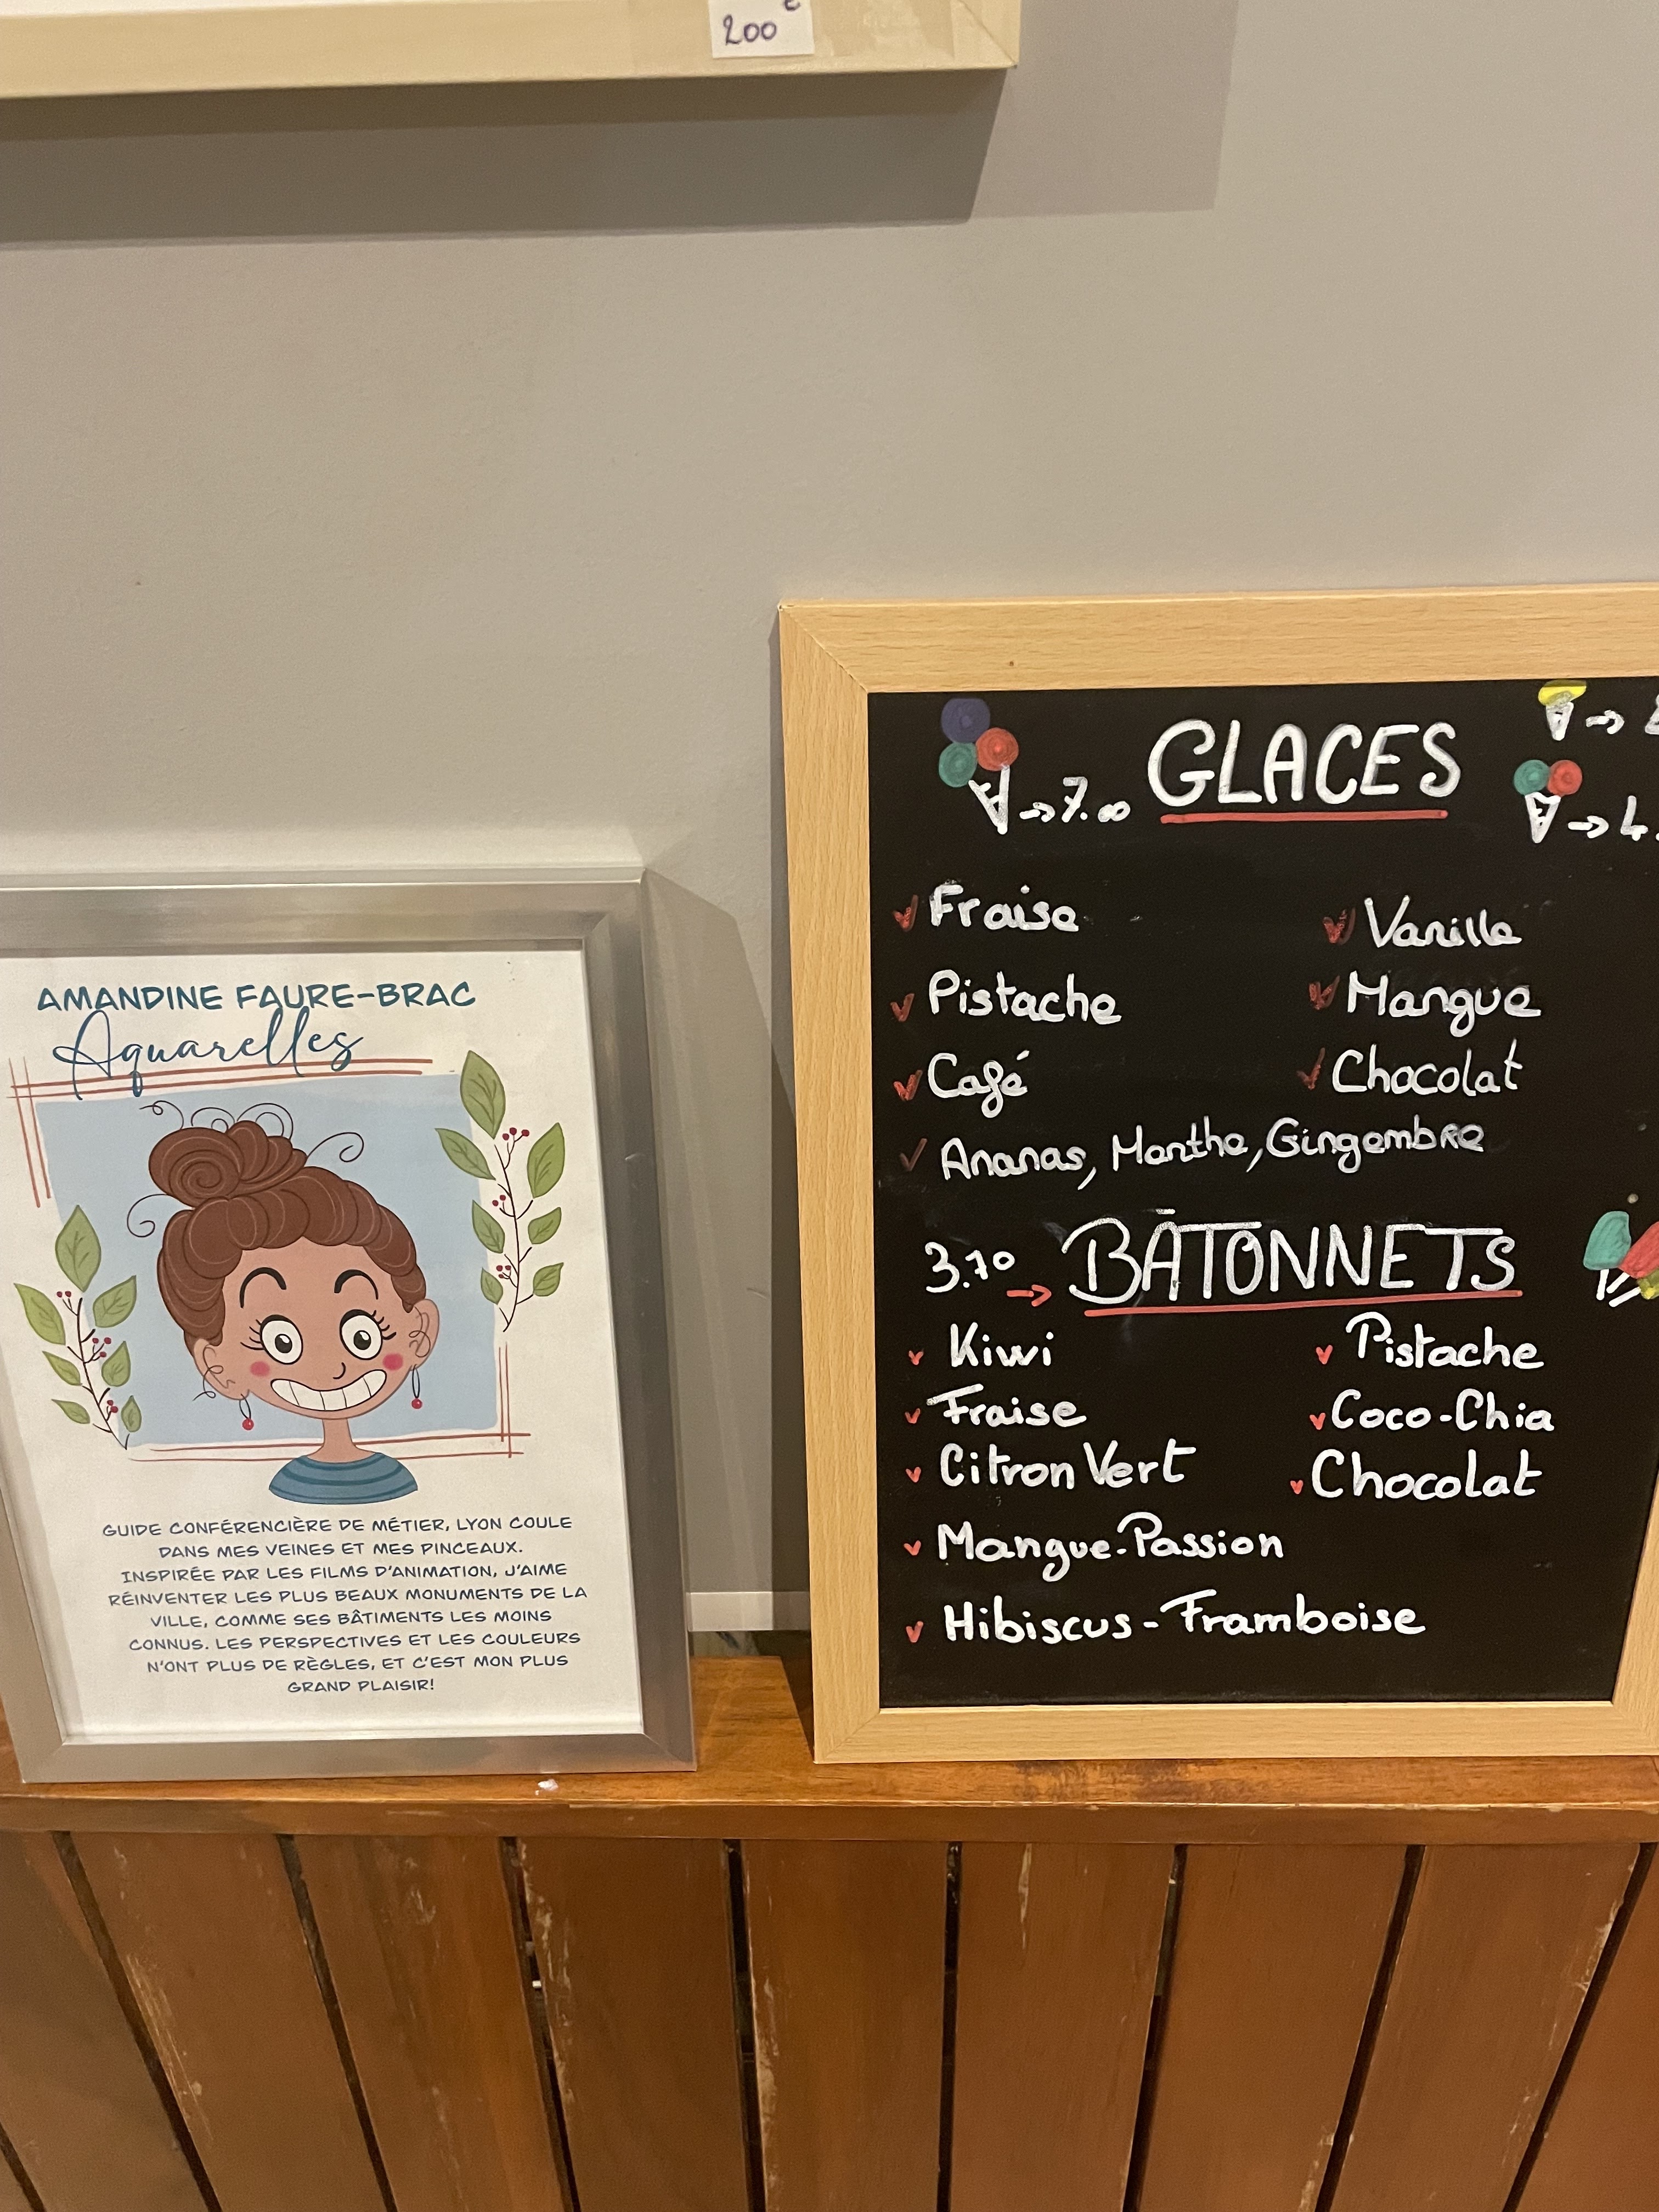 200 €
AMANDINE FAURE-BRAC
Aquarelles
GUIDE CONFÉRENCIÈRE DE MÉTIER, LYON COULE
DANS MES VEINES ET MES PINCEAUX.
INSPIRÉE PAR LES FILMS D'ANIMATION, J'AIME
RÉINVENTER LES PLUS BEAUX MONUMENTS DE LA
VILLE, COMME SES BÂTIMENTS LES MOINS
CONNUS. LES PERSPECTIVES ET LES COULEURS
N'ONT PLUS DE RÈGLES, ET C'EST MON PLUS
GRAND PLAISIR!
GLACES
→ 7.00
→
→ 4.
Fraise
Vanille
Pistache
Mangue
Café
Chocolat
Ananas, Menthe, Gingembre
3.70 → BÂTONNETS
Kiwi
Pistache
Fraise
Coco-Chia
Citron Vert
Chocolat
Mangue-Passion
Hibiscus-Framboise